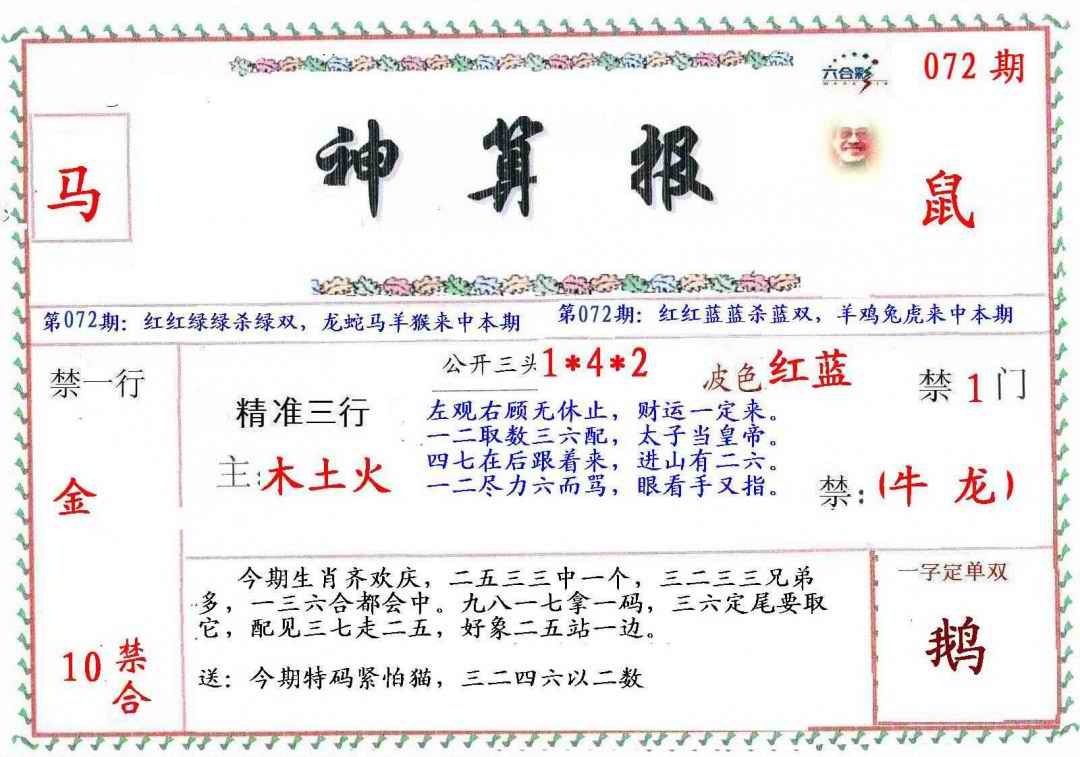 六合彩
072 期
马
神算报
鼠
第072期：红红绿绿杀绿双，龙蛇马羊猴来中本期
第072期：红红蓝蓝杀蓝双，羊鸡兔虎来中本期
禁一行
金
10 禁合
公开三头1*4*2
波色 红蓝
精准三行
主：木土火
左观右顾无休止，财运一定来。
一二取数三六配，太子当皇帝。
四七在后跟着来，进山有二六。
一二尽力六而骂，眼看手又指。
禁 1 门
禁：（牛 龙）
今期生肖齐欢庆，二五三三中一个，三二三三兄弟
多，一三六合都会中。九八一七拿一码，三六定尾要取
它，配见三七走二五，好象二五站一边。
送：今期特码紧怕猫，三二四六以二数
一字定单双
鹅